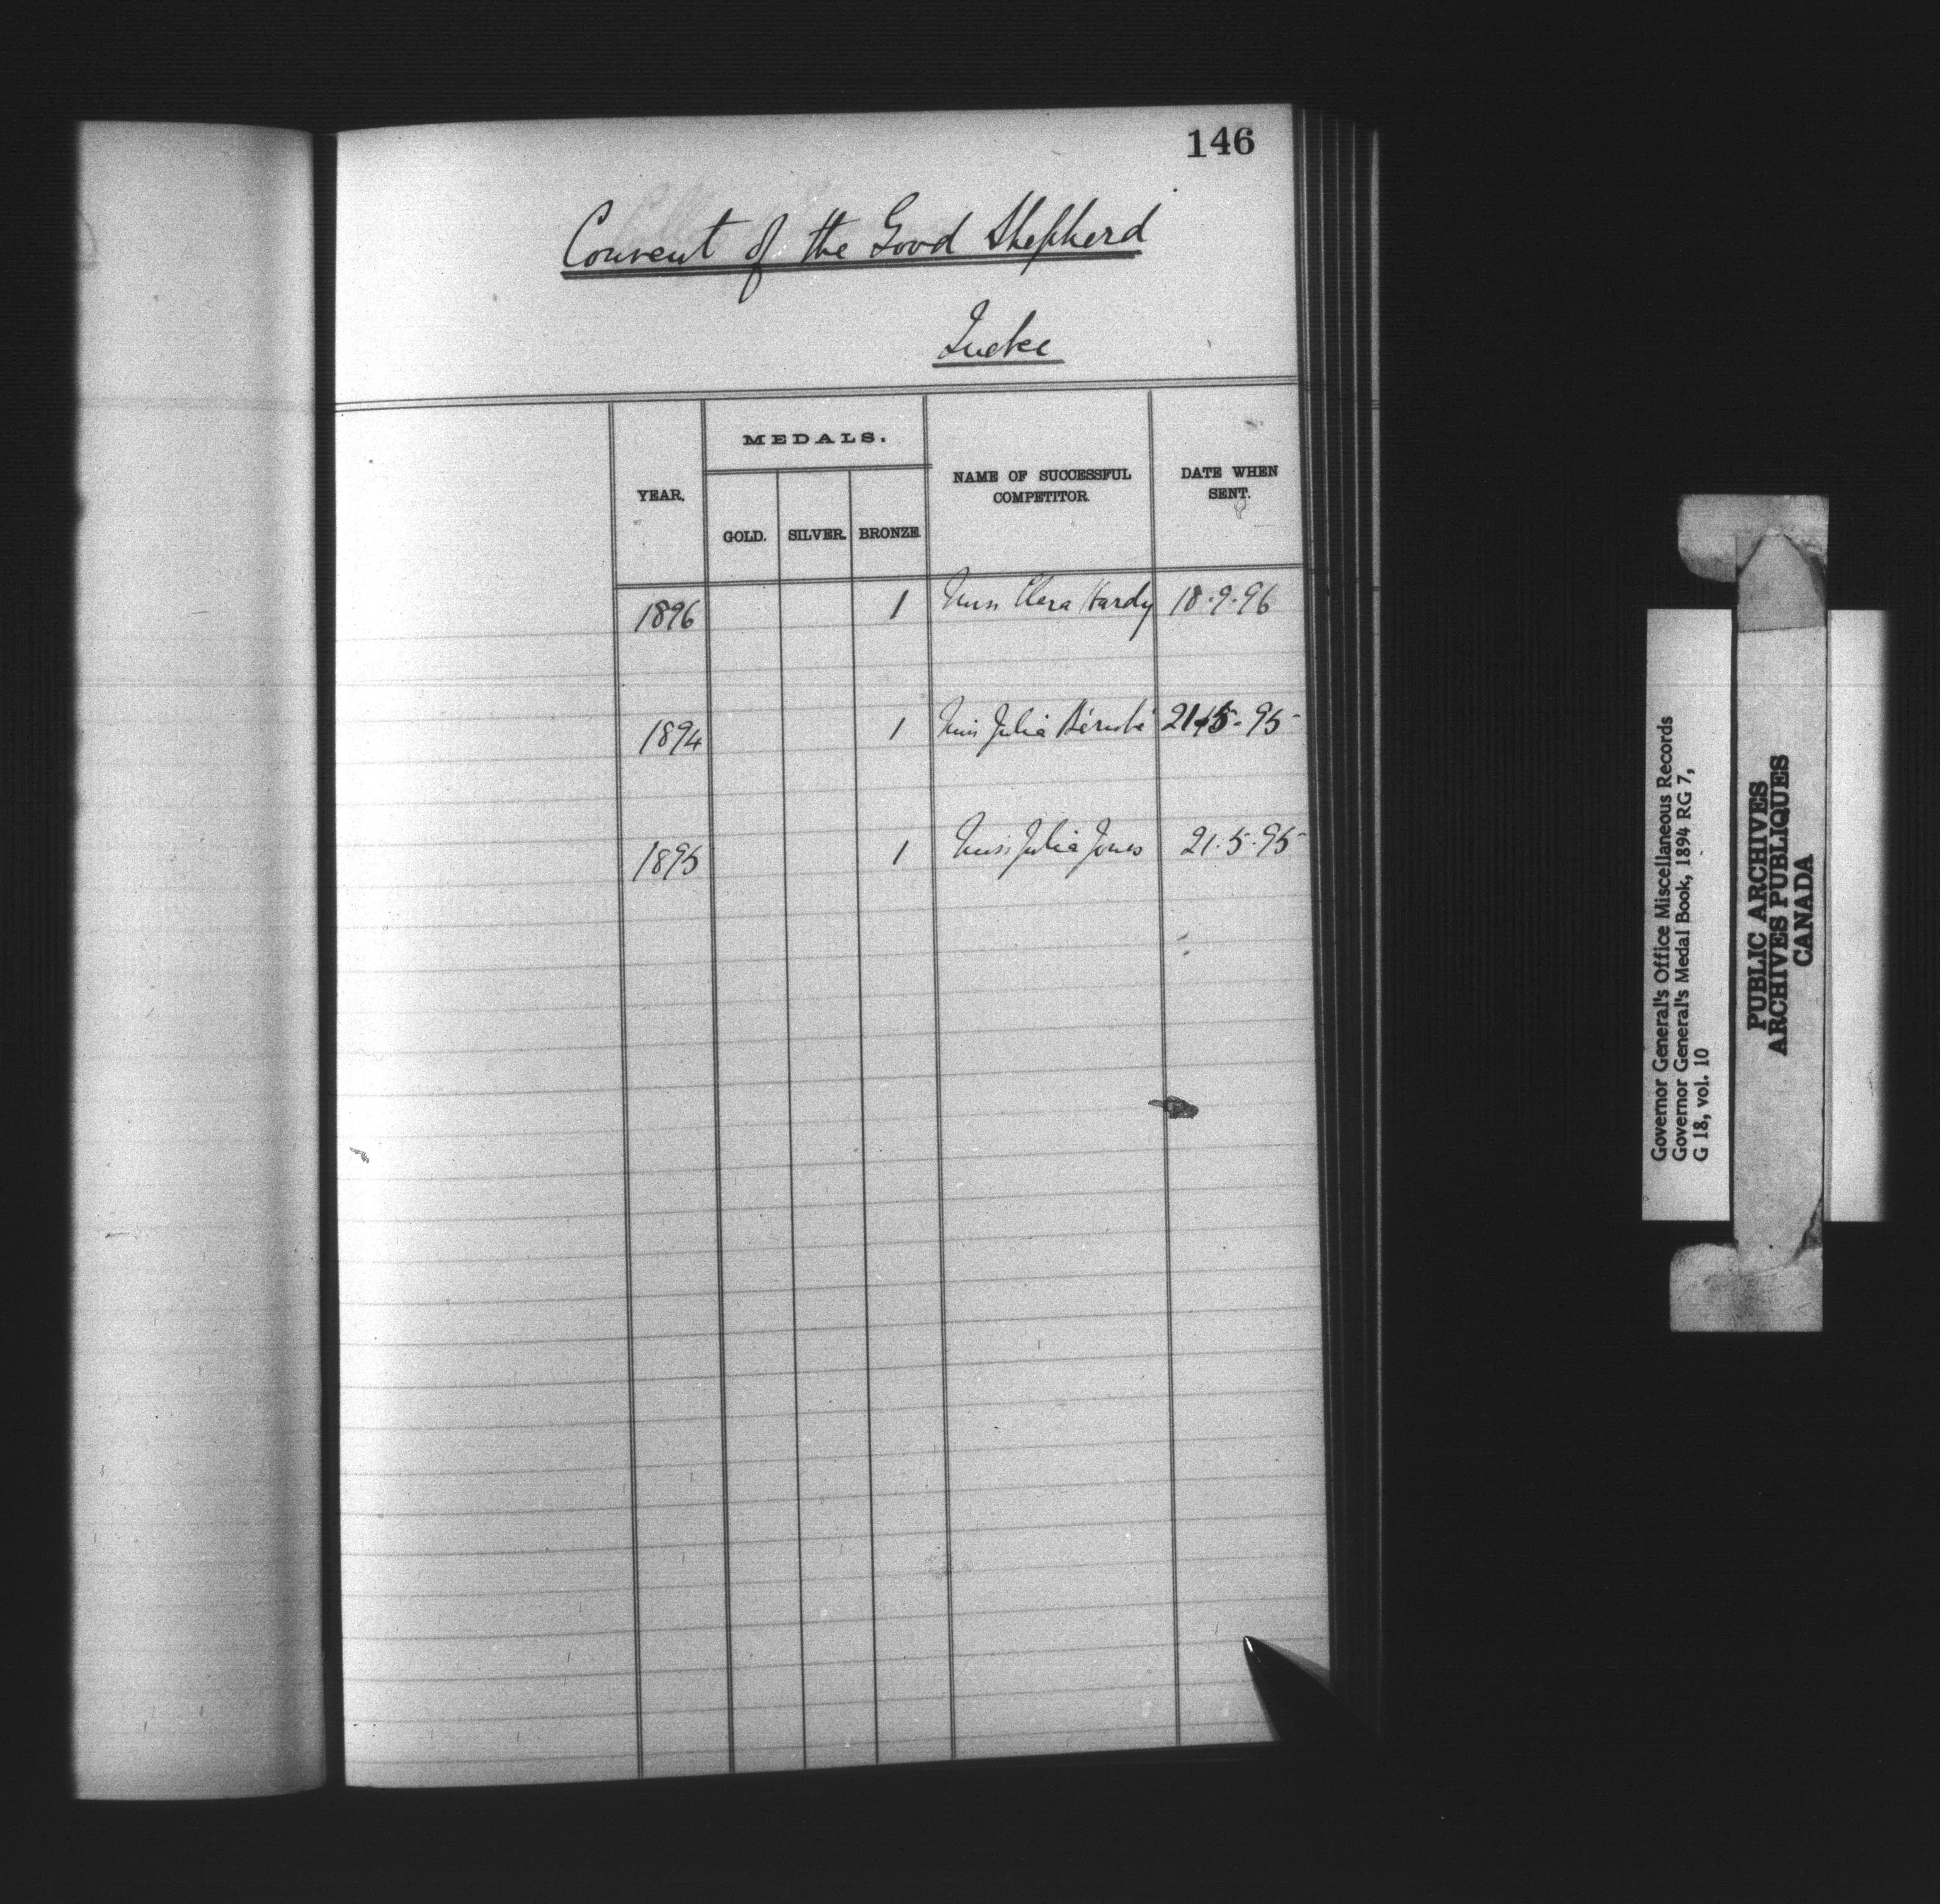 146
Convent of the Good Shepherd
Quebec
YEAR.
MEDALS.
GOLD. SILVER. BRONZE.
NAME OF SUCCESSFUL
COMPETITOR.
DATE WHEN
SENT.
1896 1 Miss Clara Hardy 18.9.96
1894 1 Miss Julia Bérubé 21.5.95
1895 1 Miss Julia Jones 21.5.95
Governor General's Office Miscellaneous Records
Governor General's Medal Book, 1894 RG 7,
G 18, vol. 10
PUBLIC ARCHIVES
ARCHIVES PUBLIQUES
CANADA